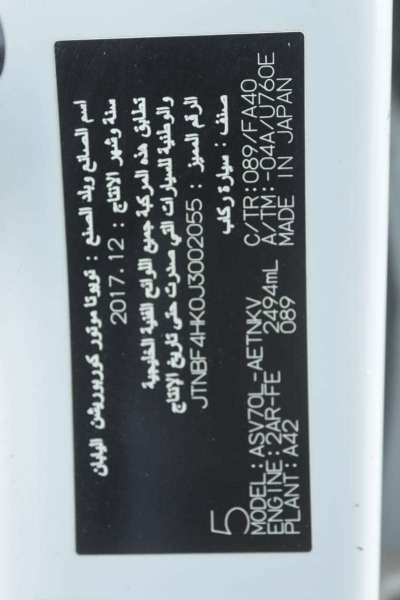 اسم الصانع وبلد الصنع : تويوتا موتور كوربوريشن اليابان
سنة وشهر الانتاج : 2017.12
تطابق هذه المركبة جميع اللوائح الفنية الخليجية
والوطنية للسيارات التي صدرت حتى تاريخ الإنتاج
الرقم المميز : JTNBF4HK0J3002055
صنف : سيارة ركاب
5
MODEL:ASV70L-AETNKV C/TR:089/FA40
ENGINE:2AR-FE 2494mL A/TM:-04A/U760E
PLANT:A42 089 MADE IN JAPAN